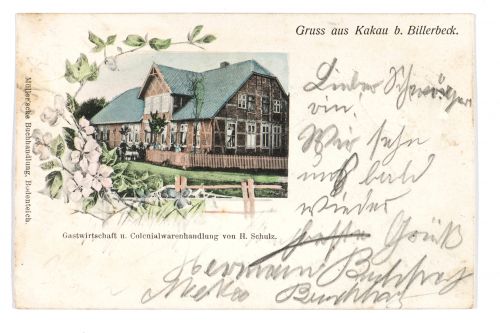 Gruss aus Kakau b. Billerbeck.
Müller'sche Buchhandlung, Bodenteich.
Gastwirtschaft u. Colonialwarenhandlung von H. Schulz.
Lieber
Wir sehn
uns bald
wieder
Gruß
Hermann
Meta